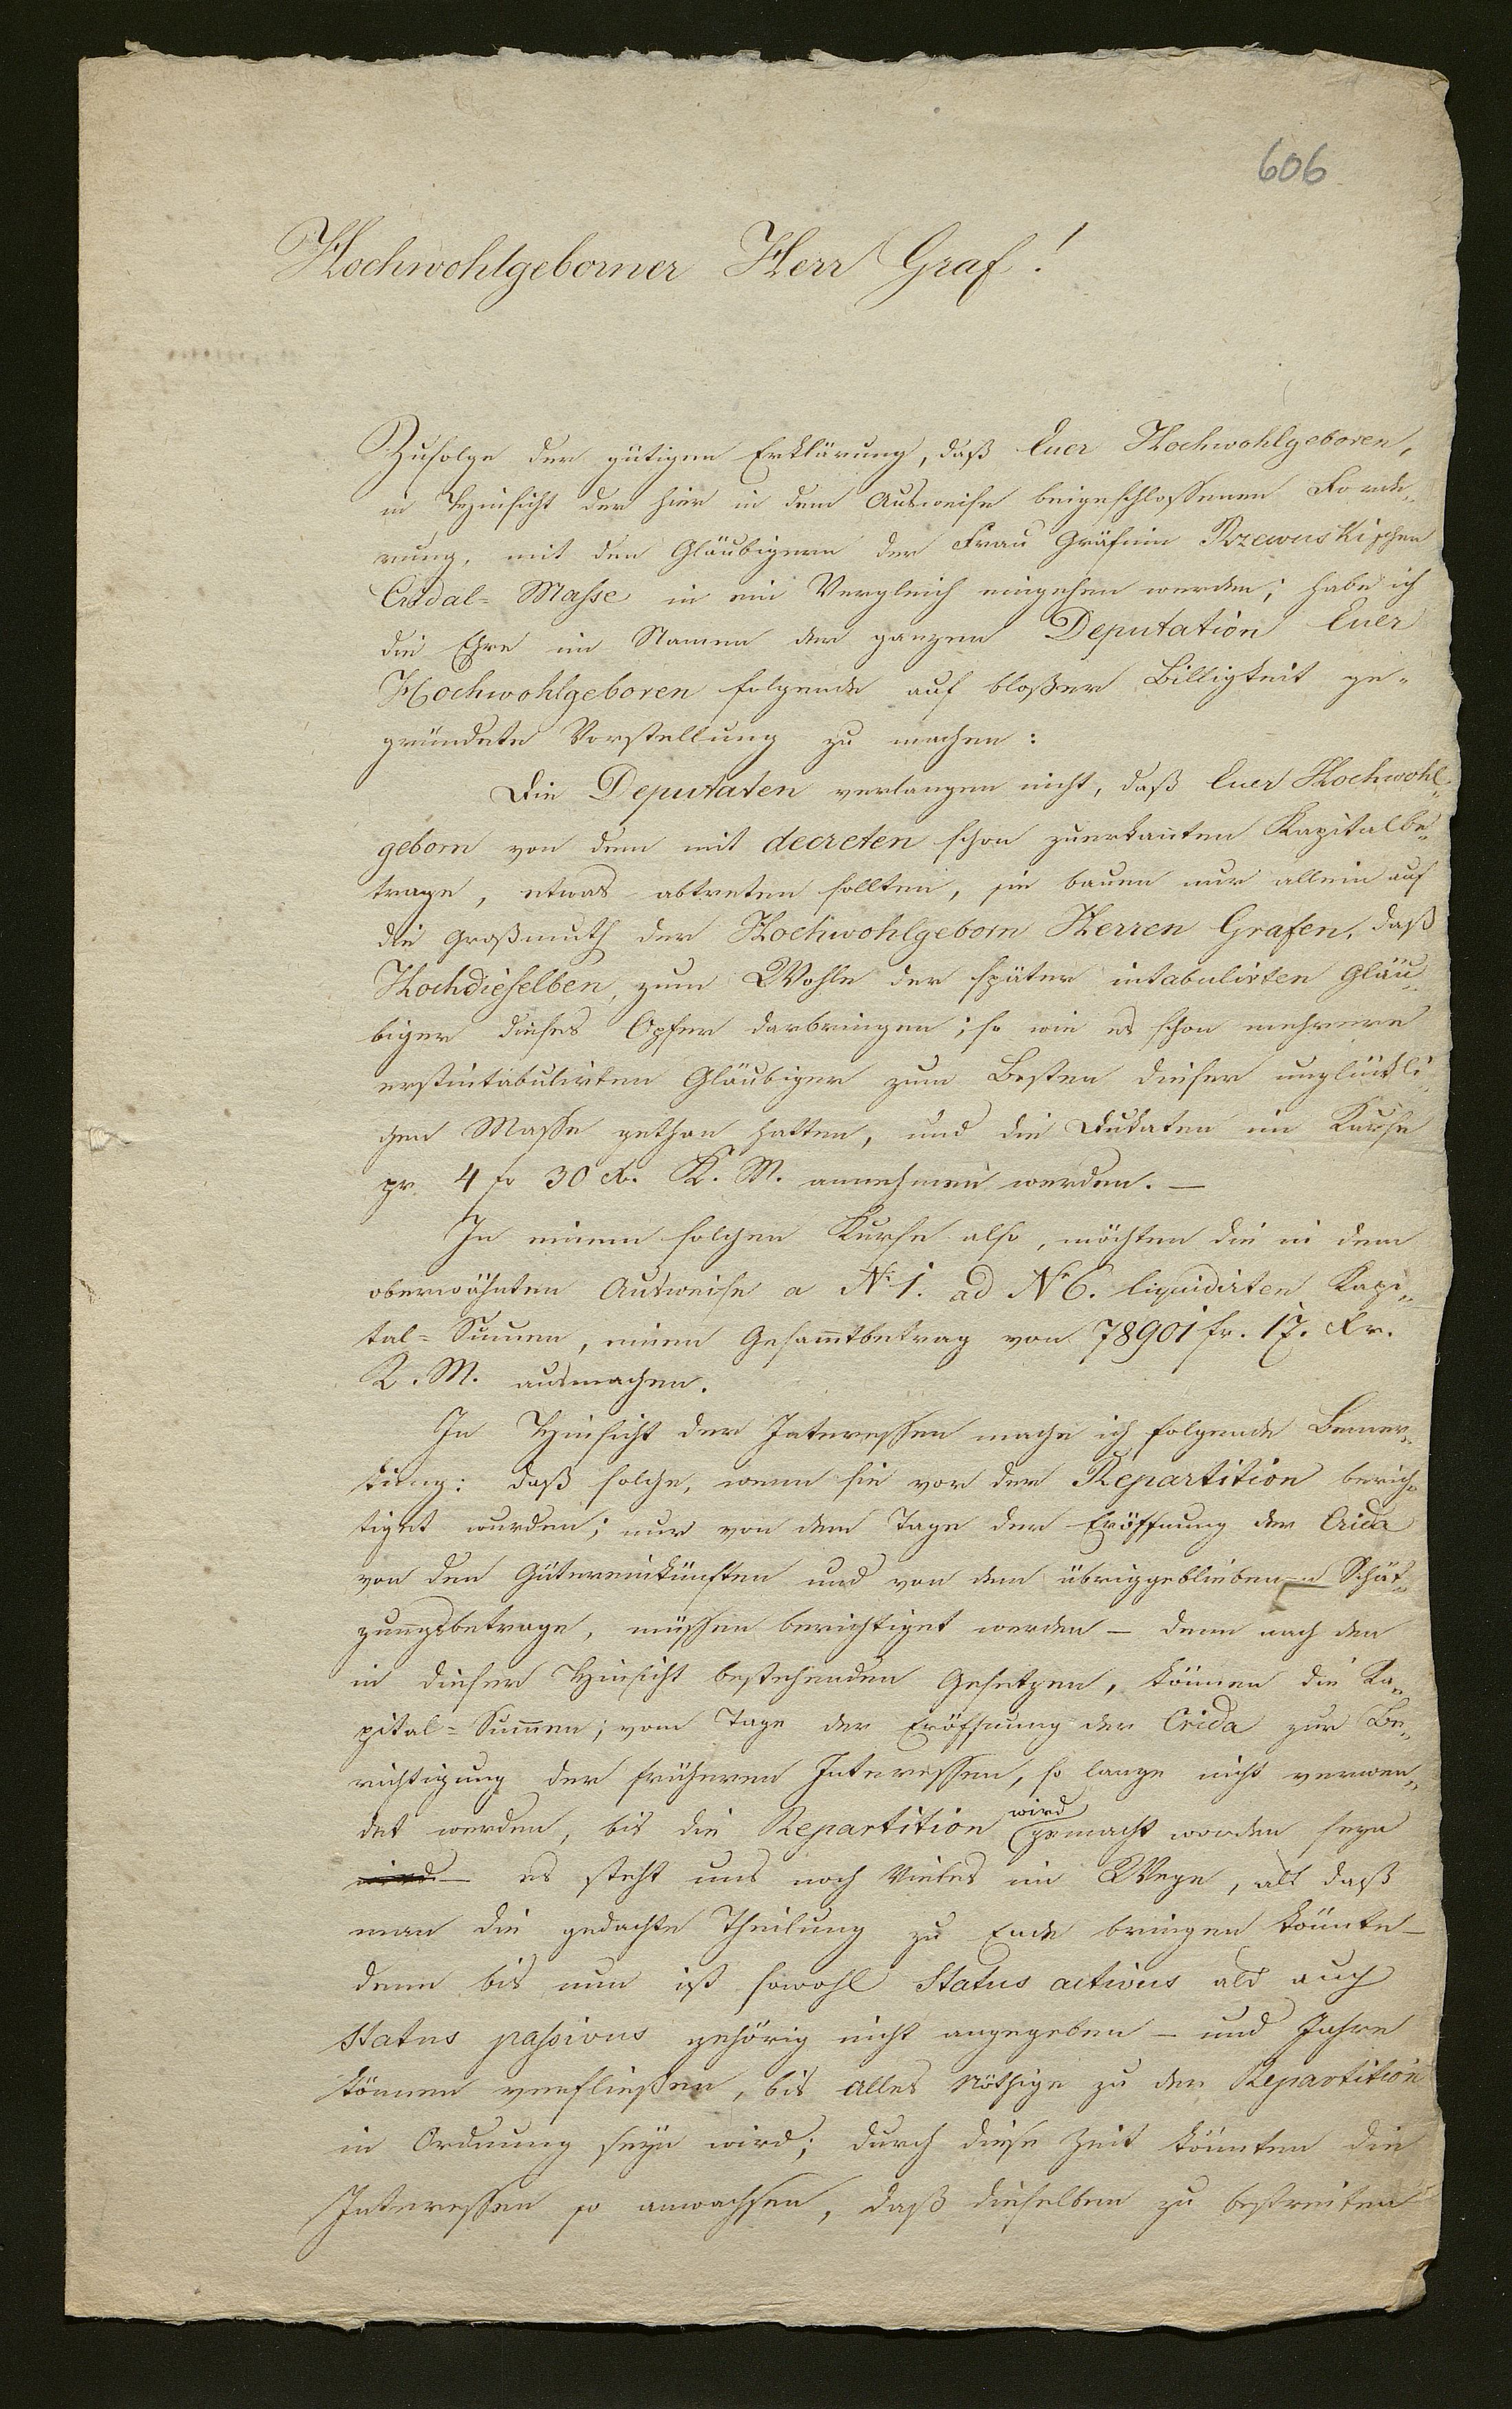 606
Hochwohlgeborner Herr Graf!
Zufolge der gütigen Erklärung, daß Euer Hochwohlgeboren,
in Hinsicht der hier in dem Ausweise beigeschlossenen Forde„
rung, mit den Gläubigern der Frau Gräfinn Rzewuskischen
Cridal- Masse in ein Vergleich eingehen werden; habe ich
die Ehre im Namen der ganzen Deputation Euer
Hochwohlgeboren folgende auf bloßer Billigkeit ge„
gründete Vorstellung zu machen:
Die Deputaten verlangen nicht, daß Euer Hochwohl„
geborn von dem mit decreten schon zuerkannten Kapitalbe„
trage, etwas abtreten sollten, sie bauen nur allein auf
die Großmuth der Hochwohlgeborn Herren Grafen, daß
Hochdieselben, zum Wohle der später intabulirten Gläu„
biger dieses Opfer darbringen; so wie es schon mehrere
erstintabulirten Gläubiger zum Besten dieser unglückli„
chen Masse gethan hatten, und die Dukaten im Kurse
pr. 4 fr 30 Xr. K. M. annehmen werden. —
In einem solchen Kurse also, möchten die in dem
oberwähnten Ausweise a No 1. ad No 6. liquidirten Kapi„
tal- Summen, einen Gesammtbetrag von 78901 fr. 17. Xr.
K. M. ausmachen.
In Hinsicht der Interessen mache ich folgende Bemer„
kung: daß solche, wenn sie vor der Repartition berich„
tiget wurden; nur von dem Tage der Eröffnung der Crida
von den Gütereinkünften und von dem übriggebliebenen Schät„
zungsbetrage, müssen berichtiget werden — denn nach den
in dieser Hinsicht bestehenden Gesetzen, können die Ka„
pital- Summen; vom Tage der Eröffnung der Crida zur Be„
richtigung der früheren Interessen, so lange nicht verwen„
det werden, bis die Repartition wird gemacht worden seyn
wird — es steht uns noch Vieles im Wege, als daß
man die gedachte Theilung zu Ende bringen könnte —
denn bis nun ist sowohl Status activus als auch
Status passivus gehörig nicht angegeben — und Jahre
können verfließen, bis Alles Nöthige zu der Repartition
in Ordnung seyn wird; durch diese Zeit könnten die
Interessen so anwachsen, daß dieselben zu bestreiten